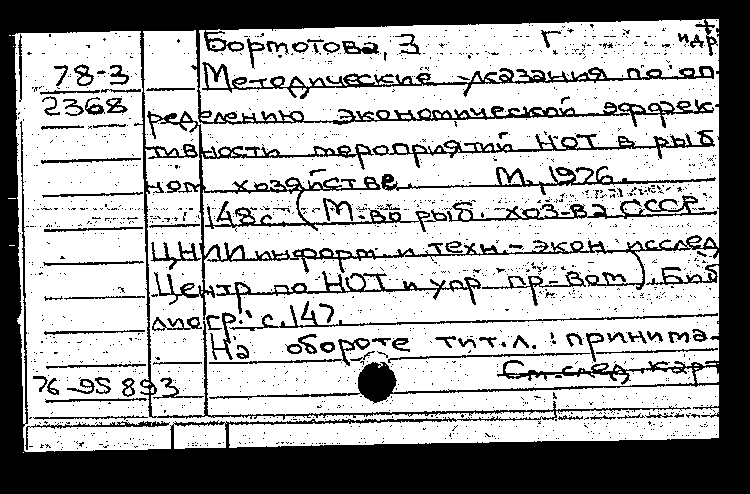 Бормотова, З Г. и др
78-3 Методические указания по оп-
2368 ределению экономической эффек-
тивности мероприятий НОТ в рыб
ном хозяйстве. М., 1976.
148 с. (М-во рыб. хоз-ва СССР
ЦНИИ информ и техн.-экон исслед
Центр по НОТ и упр пр-вом). Биб
лиогр.: с. 147.
На обороте тит. л.: принима-
См. след. карт
76-95893